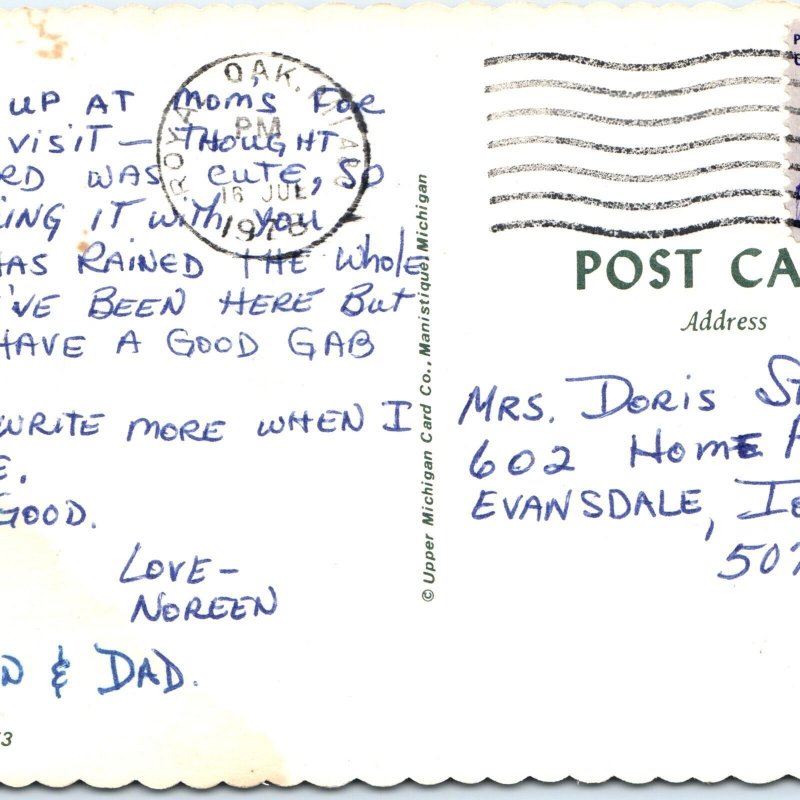 UP AT MOMS FOR
VISIT — THOUGHT
RD WAS CUTE, SO
ING IT WITH YOU
HAS RAINED THE WHOLE
'VE BEEN HERE BUT
HAVE A GOOD GAB
WRITE MORE WHEN I
E.
GOOD.
LOVE —
NOREEN
N & DAD.
3
ROYAL OAK, MI
PM
16 JUL
1978
© Upper Michigan Card Co., Manistique, Michigan
POST CA
Address
MRS. DORIS ST
602 HOME
EVANSDALE, IO
507